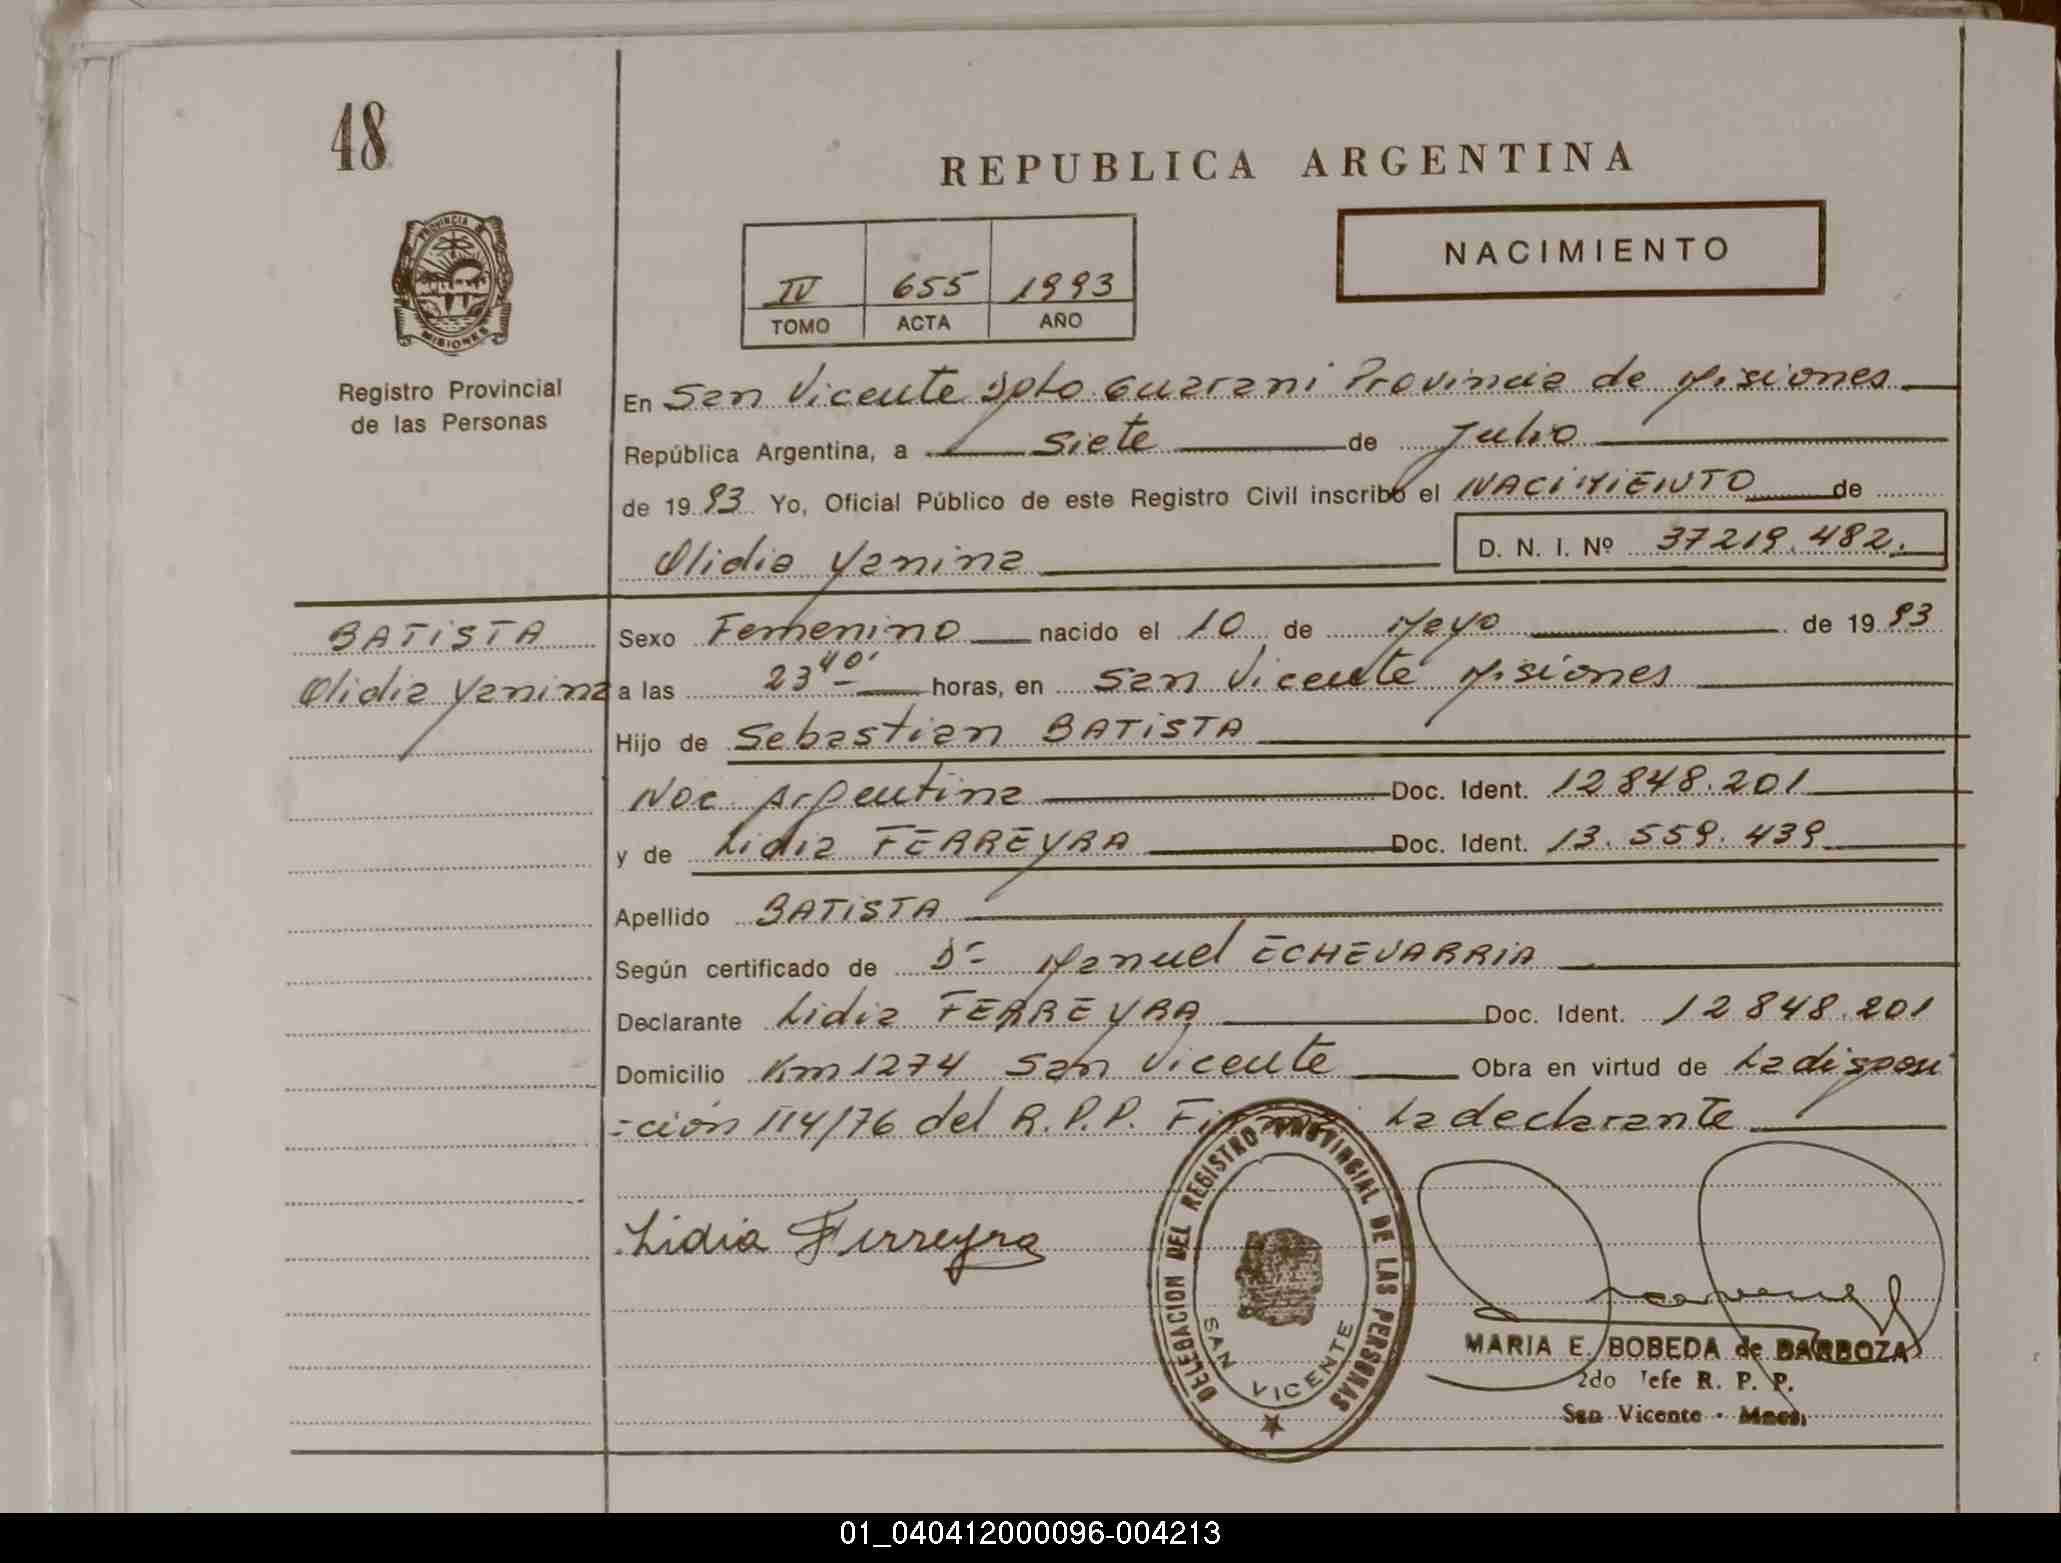 48
REPUBLICA ARGENTINA
NACIMIENTO
IV 655 1993
TOMO ACTA AÑO
PROVINCIA DE
MISIONES
Registro Provincial
de las Personas
En San Vicente Dpto Guarani Provincia de Misiones
República Argentina, a Siete de Julio
de 1993 Yo, Oficial Público de este Registro Civil inscribo el NACIMIENTO de
D. N. I. Nº 37219.482.
Olidia Yanina
BATISTA
Olidia Yanina
Sexo Femenino nacido el 10 de Mayo de 1993
a las 23 40' horas, en San Vicente Misiones
Hijo de Sebastian BATISTA
Nac. Argentina Doc. Ident. 12848.201
y de Lidia FERREYRA Doc. Ident. 13.559.439
Apellido BATISTA
Según certificado de Dr Manuel ECHEVARRIA
Declarante Lidia FERREYRA Doc. Ident. 12848.201
Domicilio Km 1274 San Vicente Obra en virtud de La disposi
=ción 114/76 del R.P.P. La declarante
Lidia Ferreyra
DELEGACION DEL REGISTRO PROVINCIAL DE LAS PERSONAS
SAN VICENTE
MARIA E. BOBEDA de BARBOZA
2do Jefe R. P. P.
San Vicente - Mnes.
01_040412000096-004213